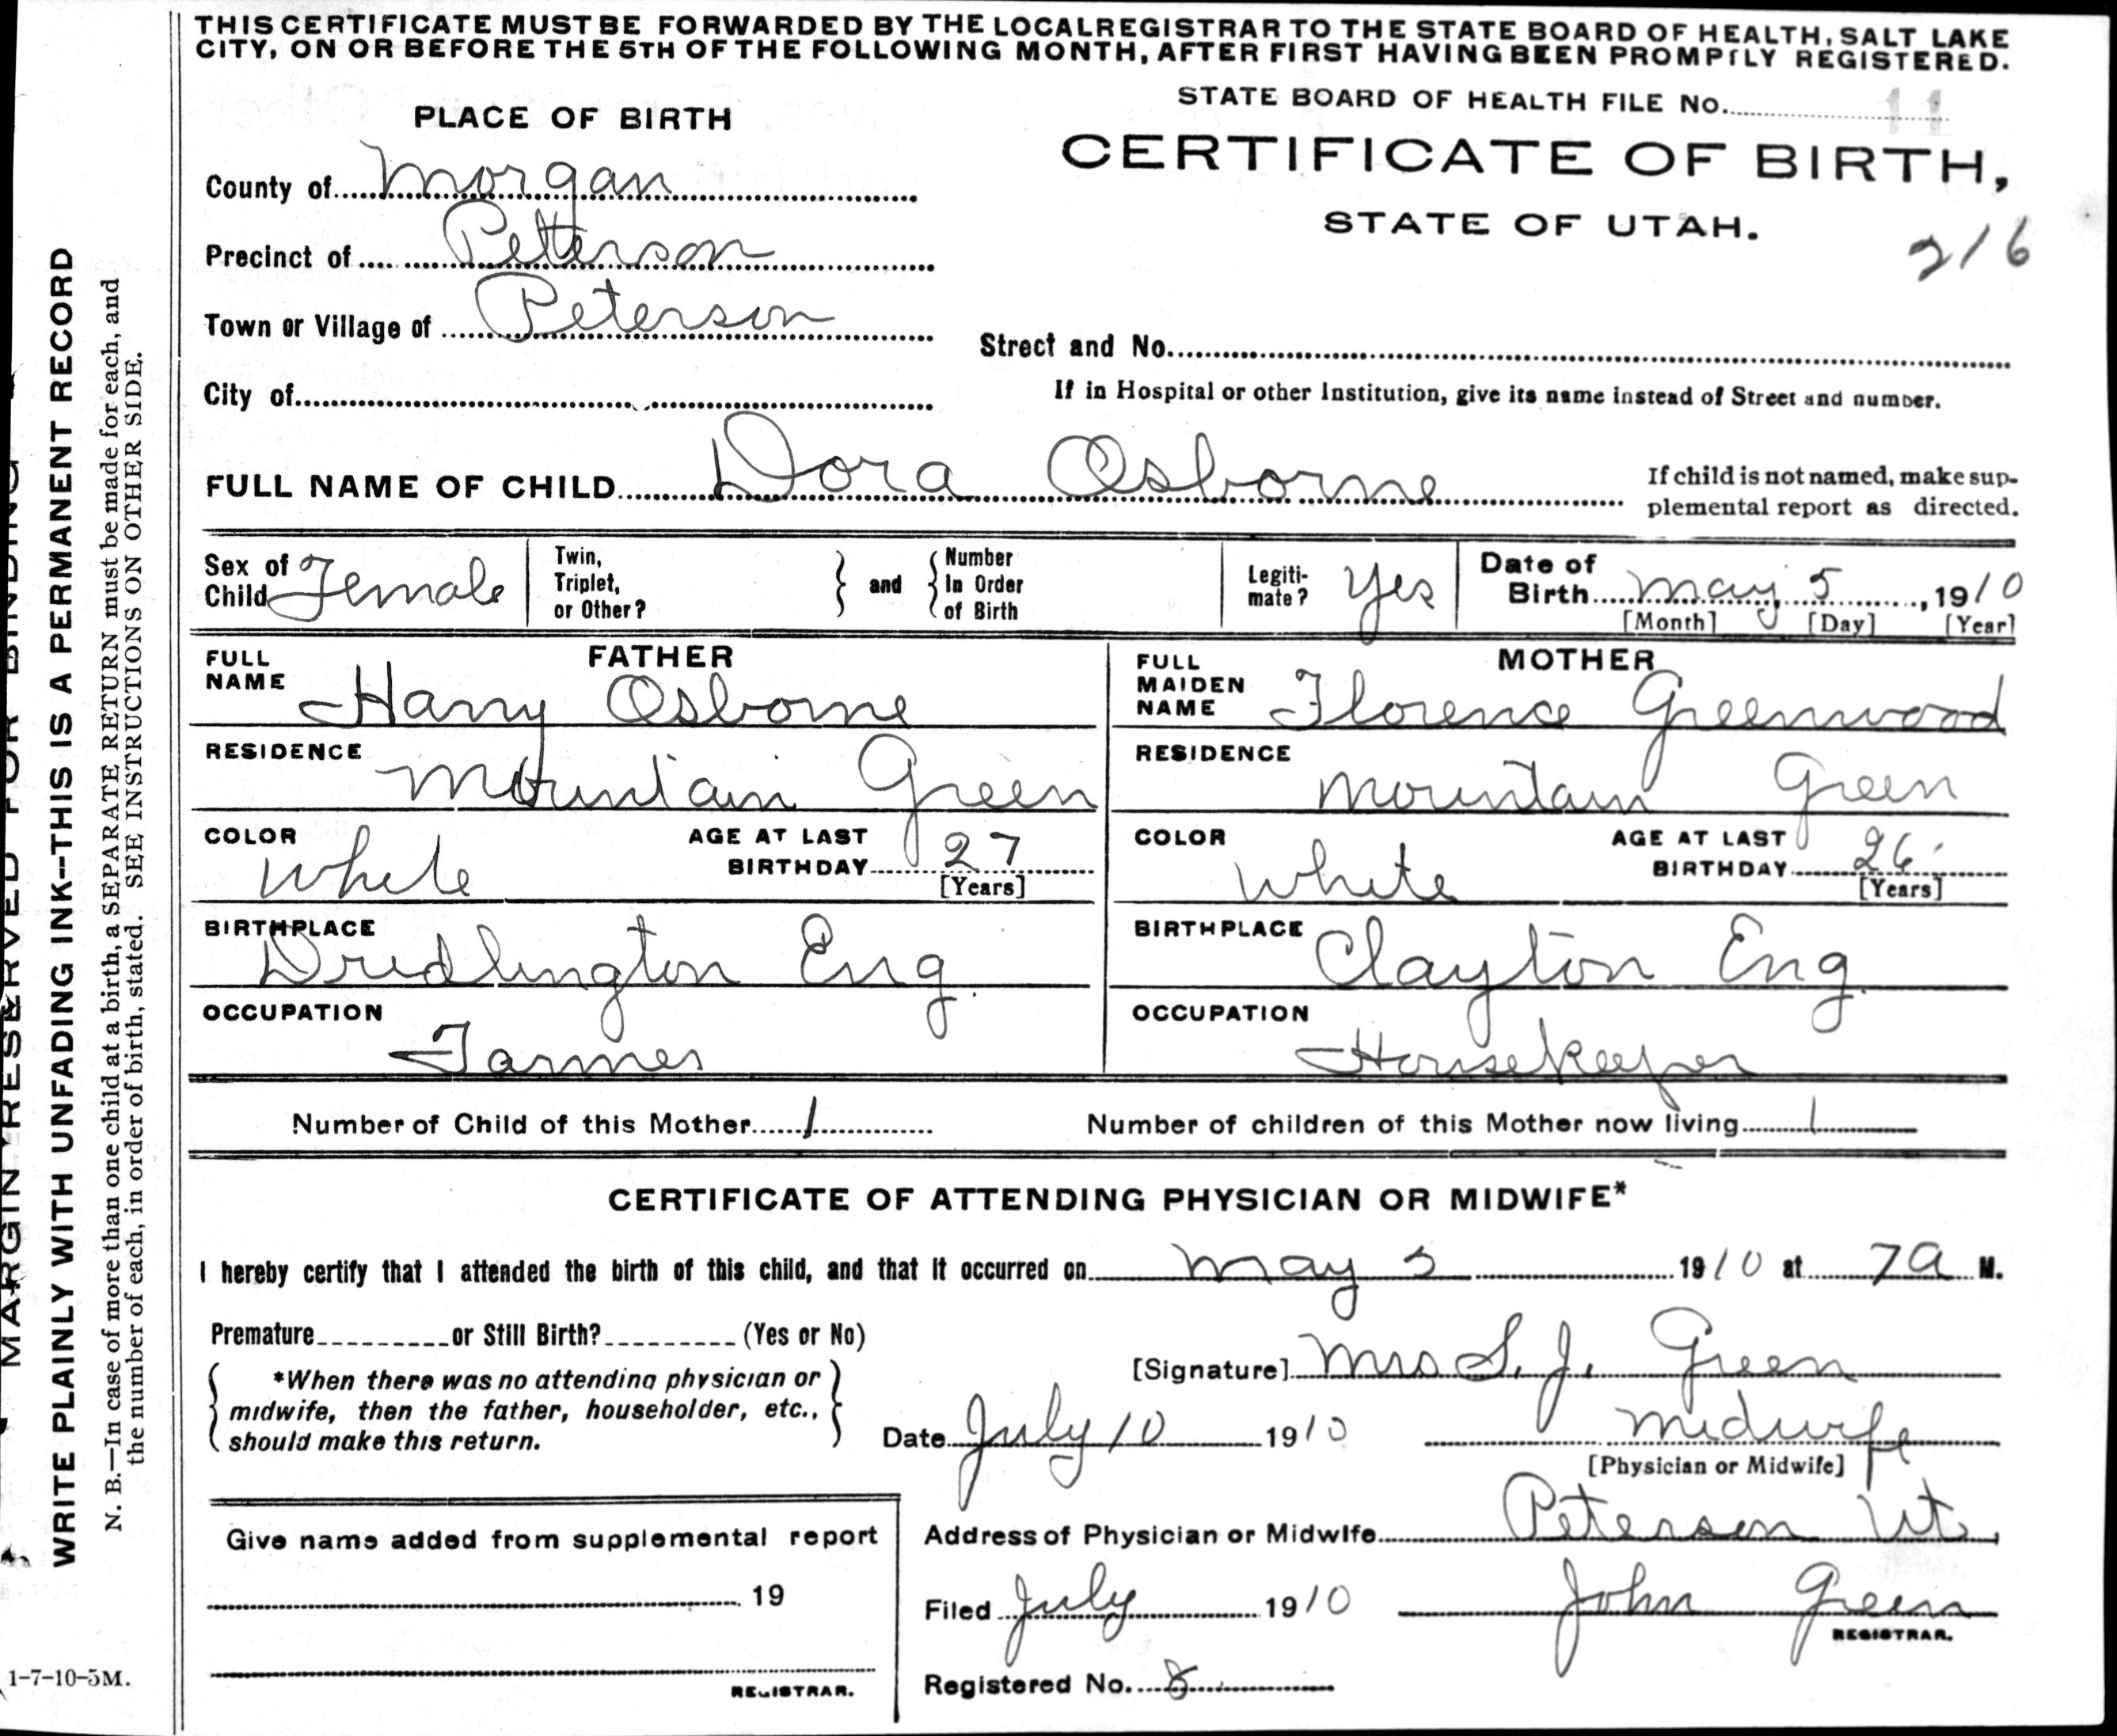 THIS CERTIFICATE MUST BE FORWARDED BY THE LOCAL REGISTRAR TO THE STATE BOARD OF HEALTH, SALT LAKE
CITY, ON OR BEFORE THE 5TH OF THE FOLLOWING MONTH, AFTER FIRST HAVING BEEN PROMPTLY REGISTERED.
STATE BOARD OF HEALTH FILE No. 11
PLACE OF BIRTH
CERTIFICATE OF BIRTH,
STATE OF UTAH.
216
County of Morgan
Precinct of Peterson
Town or Village of Peterson
Street and No.
City of
If in Hospital or other Institution, give its name instead of Street and number.
FULL NAME OF CHILD Dora Osborne
If child is not named, make sup-
plemental report as directed.
Sex of Child Female
Twin, Triplet, or Other?
and
Number in Order of Birth
Legiti-mate? Yes
Date of Birth May 5, 1910
[Month] [Day] [Year]
FATHER
FULL NAME Harry Osborne
RESIDENCE Mountain Green
COLOR White
AGE AT LAST BIRTHDAY 27
[Years]
BIRTHPLACE Dridlington Eng.
OCCUPATION Farmer
MOTHER
FULL MAIDEN NAME Florence Greenwood
RESIDENCE Mountain Green
COLOR White
AGE AT LAST BIRTHDAY 26
[Years]
BIRTHPLACE Clayton Eng.
OCCUPATION Housekeeper
Number of Child of this Mother 1
Number of children of this Mother now living 1
CERTIFICATE OF ATTENDING PHYSICIAN OR MIDWIFE*
I hereby certify that I attended the birth of this child, and that it occurred on May 5 1910 at 7 a M.
Premature or Still Birth? (Yes or No)
*When there was no attending physician or
midwife, then the father, householder, etc.,
should make this return.
[Signature] Mrs S. J. Green
Date July 10 1910
Midwife
[Physician or Midwife]
Give name added from supplemental report
19
REGISTRAR.
Address of Physician or Midwife Peterson Ut.
Filed July 1910
John Green
REGISTRAR.
Registered No. 8
1-7-10-5M.
MARGIN RESERVED FOR BINDING
WRITE PLAINLY WITH UNFADING INK--THIS IS A PERMANENT RECORD
N. B.—In case of more than one child at a birth, a SEPARATE RETURN must be made for each, and
the number of each, in order of birth, stated. SEE INSTRUCTIONS ON OTHER SIDE.